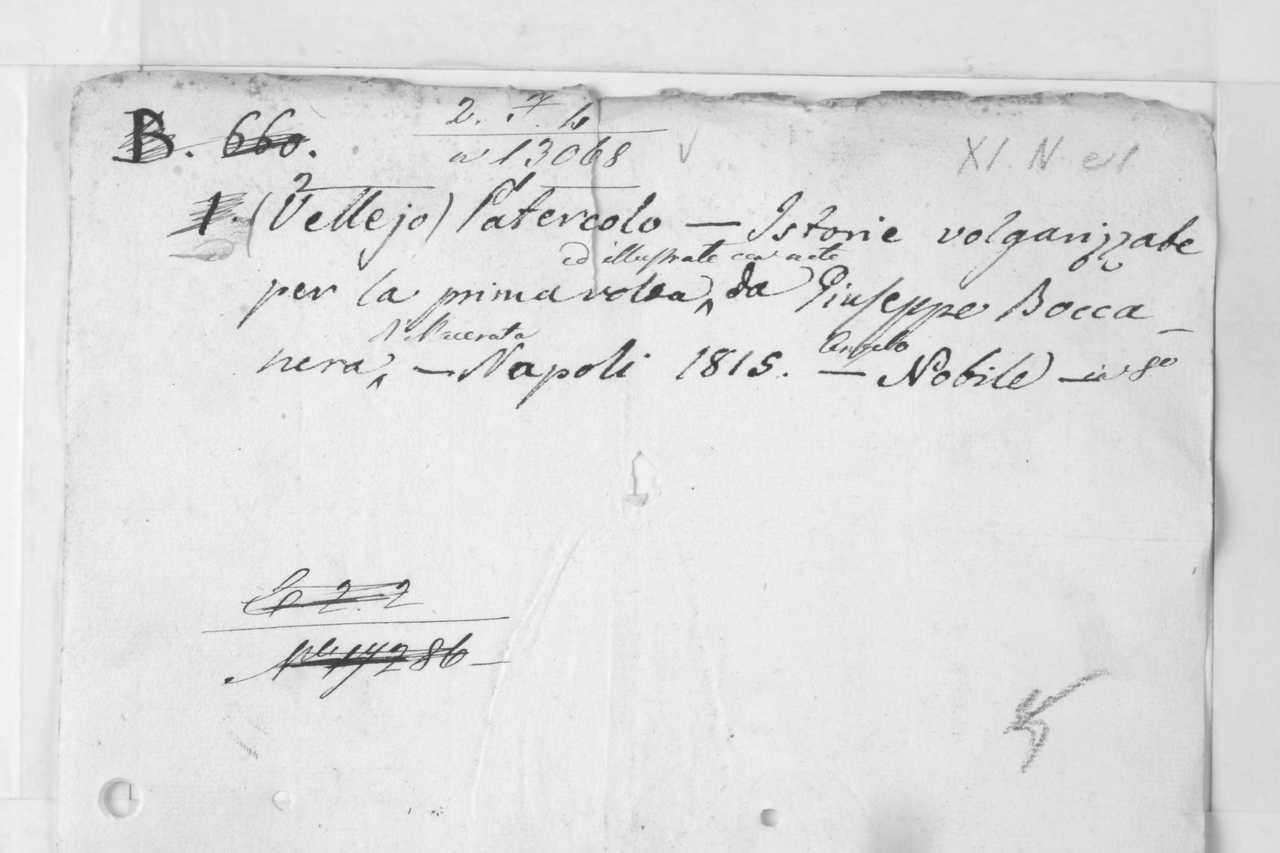 B. 660.
2. 7. 4
a 13068
V
XI N e 1
1. (Vellejo) Patercolo — Istorie volgarizzate
ed illustrate con note
per la prima volta da Giuseppe Bocca-
di Macerata
nera — Napoli 1815. — Angelo Nobile — in 8°
2. 2
17286